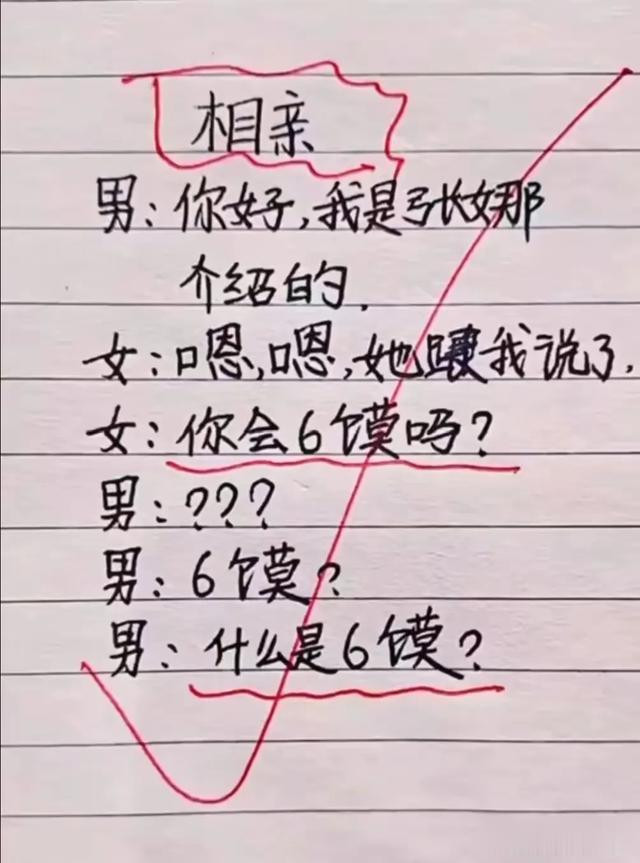 相亲
男：你好，我是张娜
介绍的.
女：嗯，嗯，她跟我说了.
女：你会6馍吗？
男：？？？
男：6馍？
男：什么是6馍？